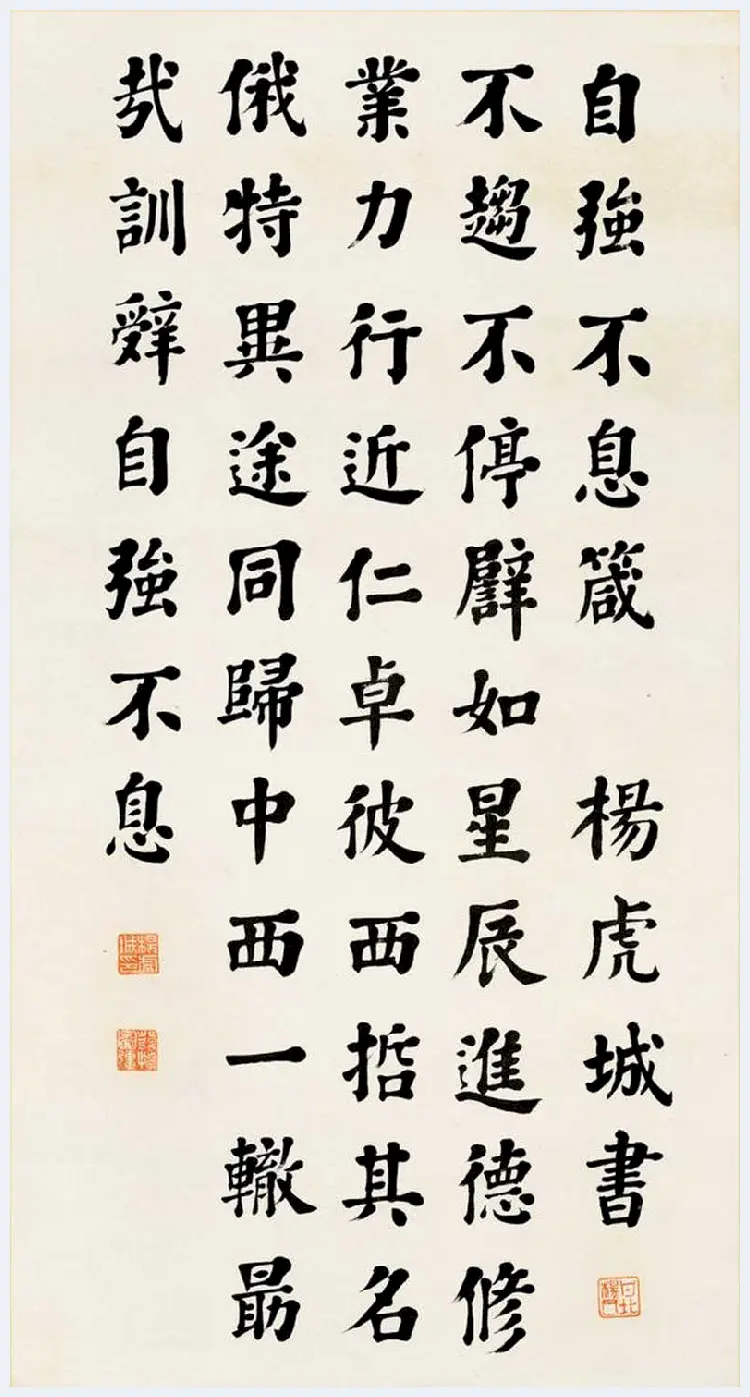 自強不息箴 楊虎城書
不趨不停譬如星辰進德修
業力行近仁卓彼西哲其名
俄特異途同歸中西一轍勗
哉訓辭自強不息